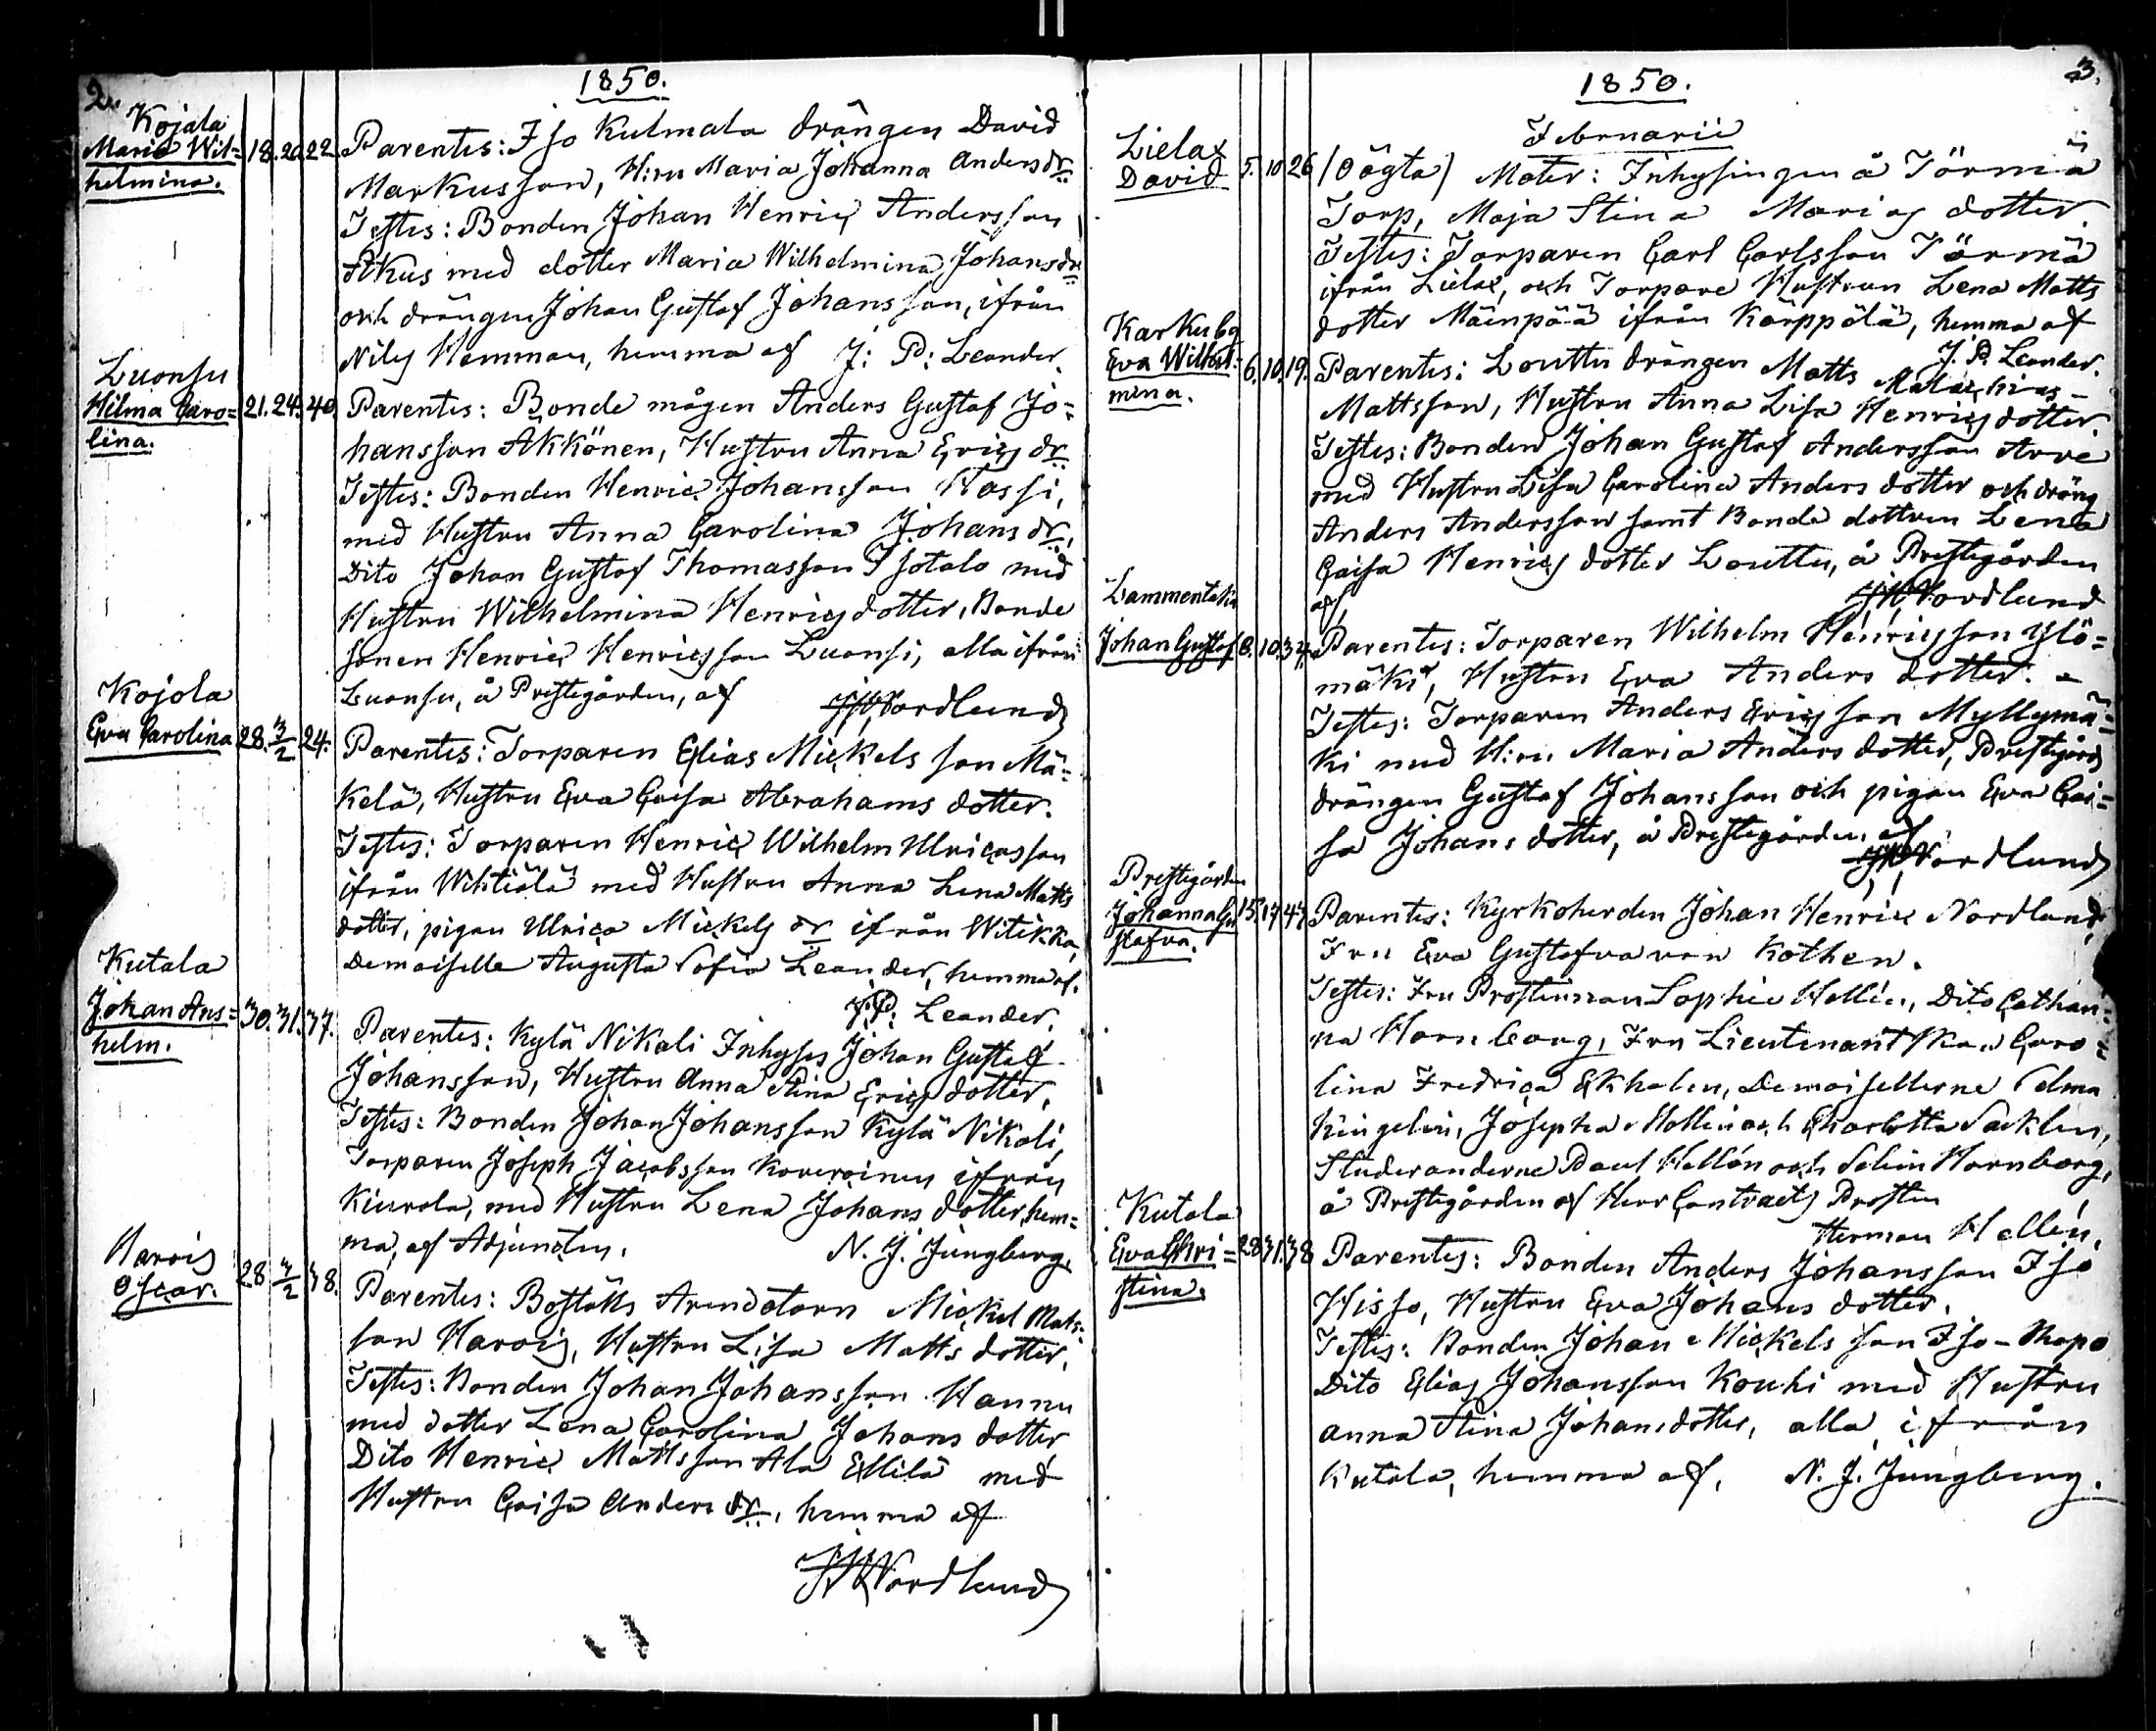 2.
1850.
Kojala
Maria Wil=
helmina.
18. 20. 22.
Parentes: Iso Kulmala drängen David
Markusson, H:ru Maria Johanna Andersdr
Testes: Bonden Johan Henric Andersson
Akus med dotter Maria Wilhelmina Johansdr
och drängen Johan Gustaf Johansson, ifrån
Nily Hemman, hemma af J: P: Leander.
Luonsu
Hilma Caro=
lina.
21. 24. 40.
Parentes: Bonde mågen Anders Gustaf Jo=
hansson Äkkönen, Hustru Anna Erics dr
Testes: Bonden Henric Johansson Hassi,
med Hustru Anna Carolina Johans dr,
Dito Johan Gustaf Thomasson Isotalo med
Hustru Wilhelmina Henrics dotter, Bonde
sonen Henric Henricsson Luonsi, alla ifrån
Luonsu, å Prestegården, af JHNordlund
Kojola
Eva Carolina
28. 3/2 24.
Parentes: Torparen Elias Mickels son Mä=
kelä, Hustru Eva Caisa Abrahams dotter.
Testes: Torparen Henric Wilhelm Ulricasson
ifrån Wihtiälä med Hustru Anna Lena Matts
dotter, pigan Ulrica Mickels dr ifrån Witikka,
Demoiselle Augusta Sofia Leander, hemma af.
J. P: Leander.
Kutala
Johan Ans=
helm.
30. 31. 37.
Parentes: Kylä Nikali Inhyses Johan Gustaf
Johansson, Hustru Anna Stina Erics dotter,
Testes: Bonden Johan Johansson Kylä Nikali,
Torparen Joseph Jacobsson Koveroinen ifrån
Kiurala, med Hustru Lena Johans dotter, hem=
ma, af Adjuncten. N. J. Jungberg.
Harois
Oscar.
28 3/2 38.
Parentes: Boställs Arendatorn Mickel Mats=
son Harois, Hustru Lisa Matts dotter.
Testes: Bonden Johan Johansson Hannu
med dotter Lena Carolina Johans dotter
Dito Henric Mattsson Ala Ellilä med
Hustru Caisa Anders dr, hemma af
JHNordlund
3.
1850.
Februarii
Lielax
David
5. 10 26
(Oägta) Mater: Inhysingen å Törmä
Torp, Maja Stina Marias dotter.
Testes: Torparen Carl Carlsson Törmä
ifrån Lielax, och Torpare Hustrun Lena Matts
dotter Mäenpää ifrån Karppälä, hemma af
J. P. Leander.
Karkuby
Eva Wilhel=
mina.
6. 10. 19.
Parentes: Louttu drängen Matts Malachias
Mattsson, Hustru Anna Lisa Henrics dotter.
Testes: Bonden Johan Gustaf Andersson Arve
med Hustru Lisa Carolina Anders dotter och dräng
Anders Andersson samt Bonde dottren Lena
Caisa Henrics dotter Louttu, å Prestegården
af JHNordlund
Lammentaka
Johan Gustaf
8. 10. 34.
Parentes: Torparen Wilhelm Henricsson Ylö=
mäki, Hustru Eva Anders dotter.
Testes: Torparen Anders Ericsson Myllymä=
ki med H:ru Maria Anders dotter, Prestgårds
drängen Gustaf Johansson och pigan Eva Cai=
sa Johans dotter, å Prestegården, af
JHNordlund
Prestegården
Johanna Gu
stafva.
15. 17 47
Parentes: Kyrkoherden Johan Henric Nordlund,
Fru Eva Gustafva von Kothen.
Testes: Fru Prostinnan Sophie Hellén, Dito Cathari=
na Hornborg, Fru Lieutenantskan Caro=
lina Fredrica Ekholm, Demoisellerne Selma
Kingelin, Josepha Mollin och Charlotta Sacklen,
Studeranderne Paul Hellén och Selim Hornborg,
å Prestegården af Herr Contracts Prosten
Herman Hellén.
Kutala
Eva Chri=
stina.
28 31. 38
Parentes: Bonden Anders Johansson Iso
Hisso, Hustru Eva Johans dotter.
Testes: Bonden Johan Mickels son Iso-Papo
Dito Elias Johansson Kouhi med Hustru
Anna Stina Johansdotter, alla ifrån
Kutala, hemma af, N. J. Jungberg.